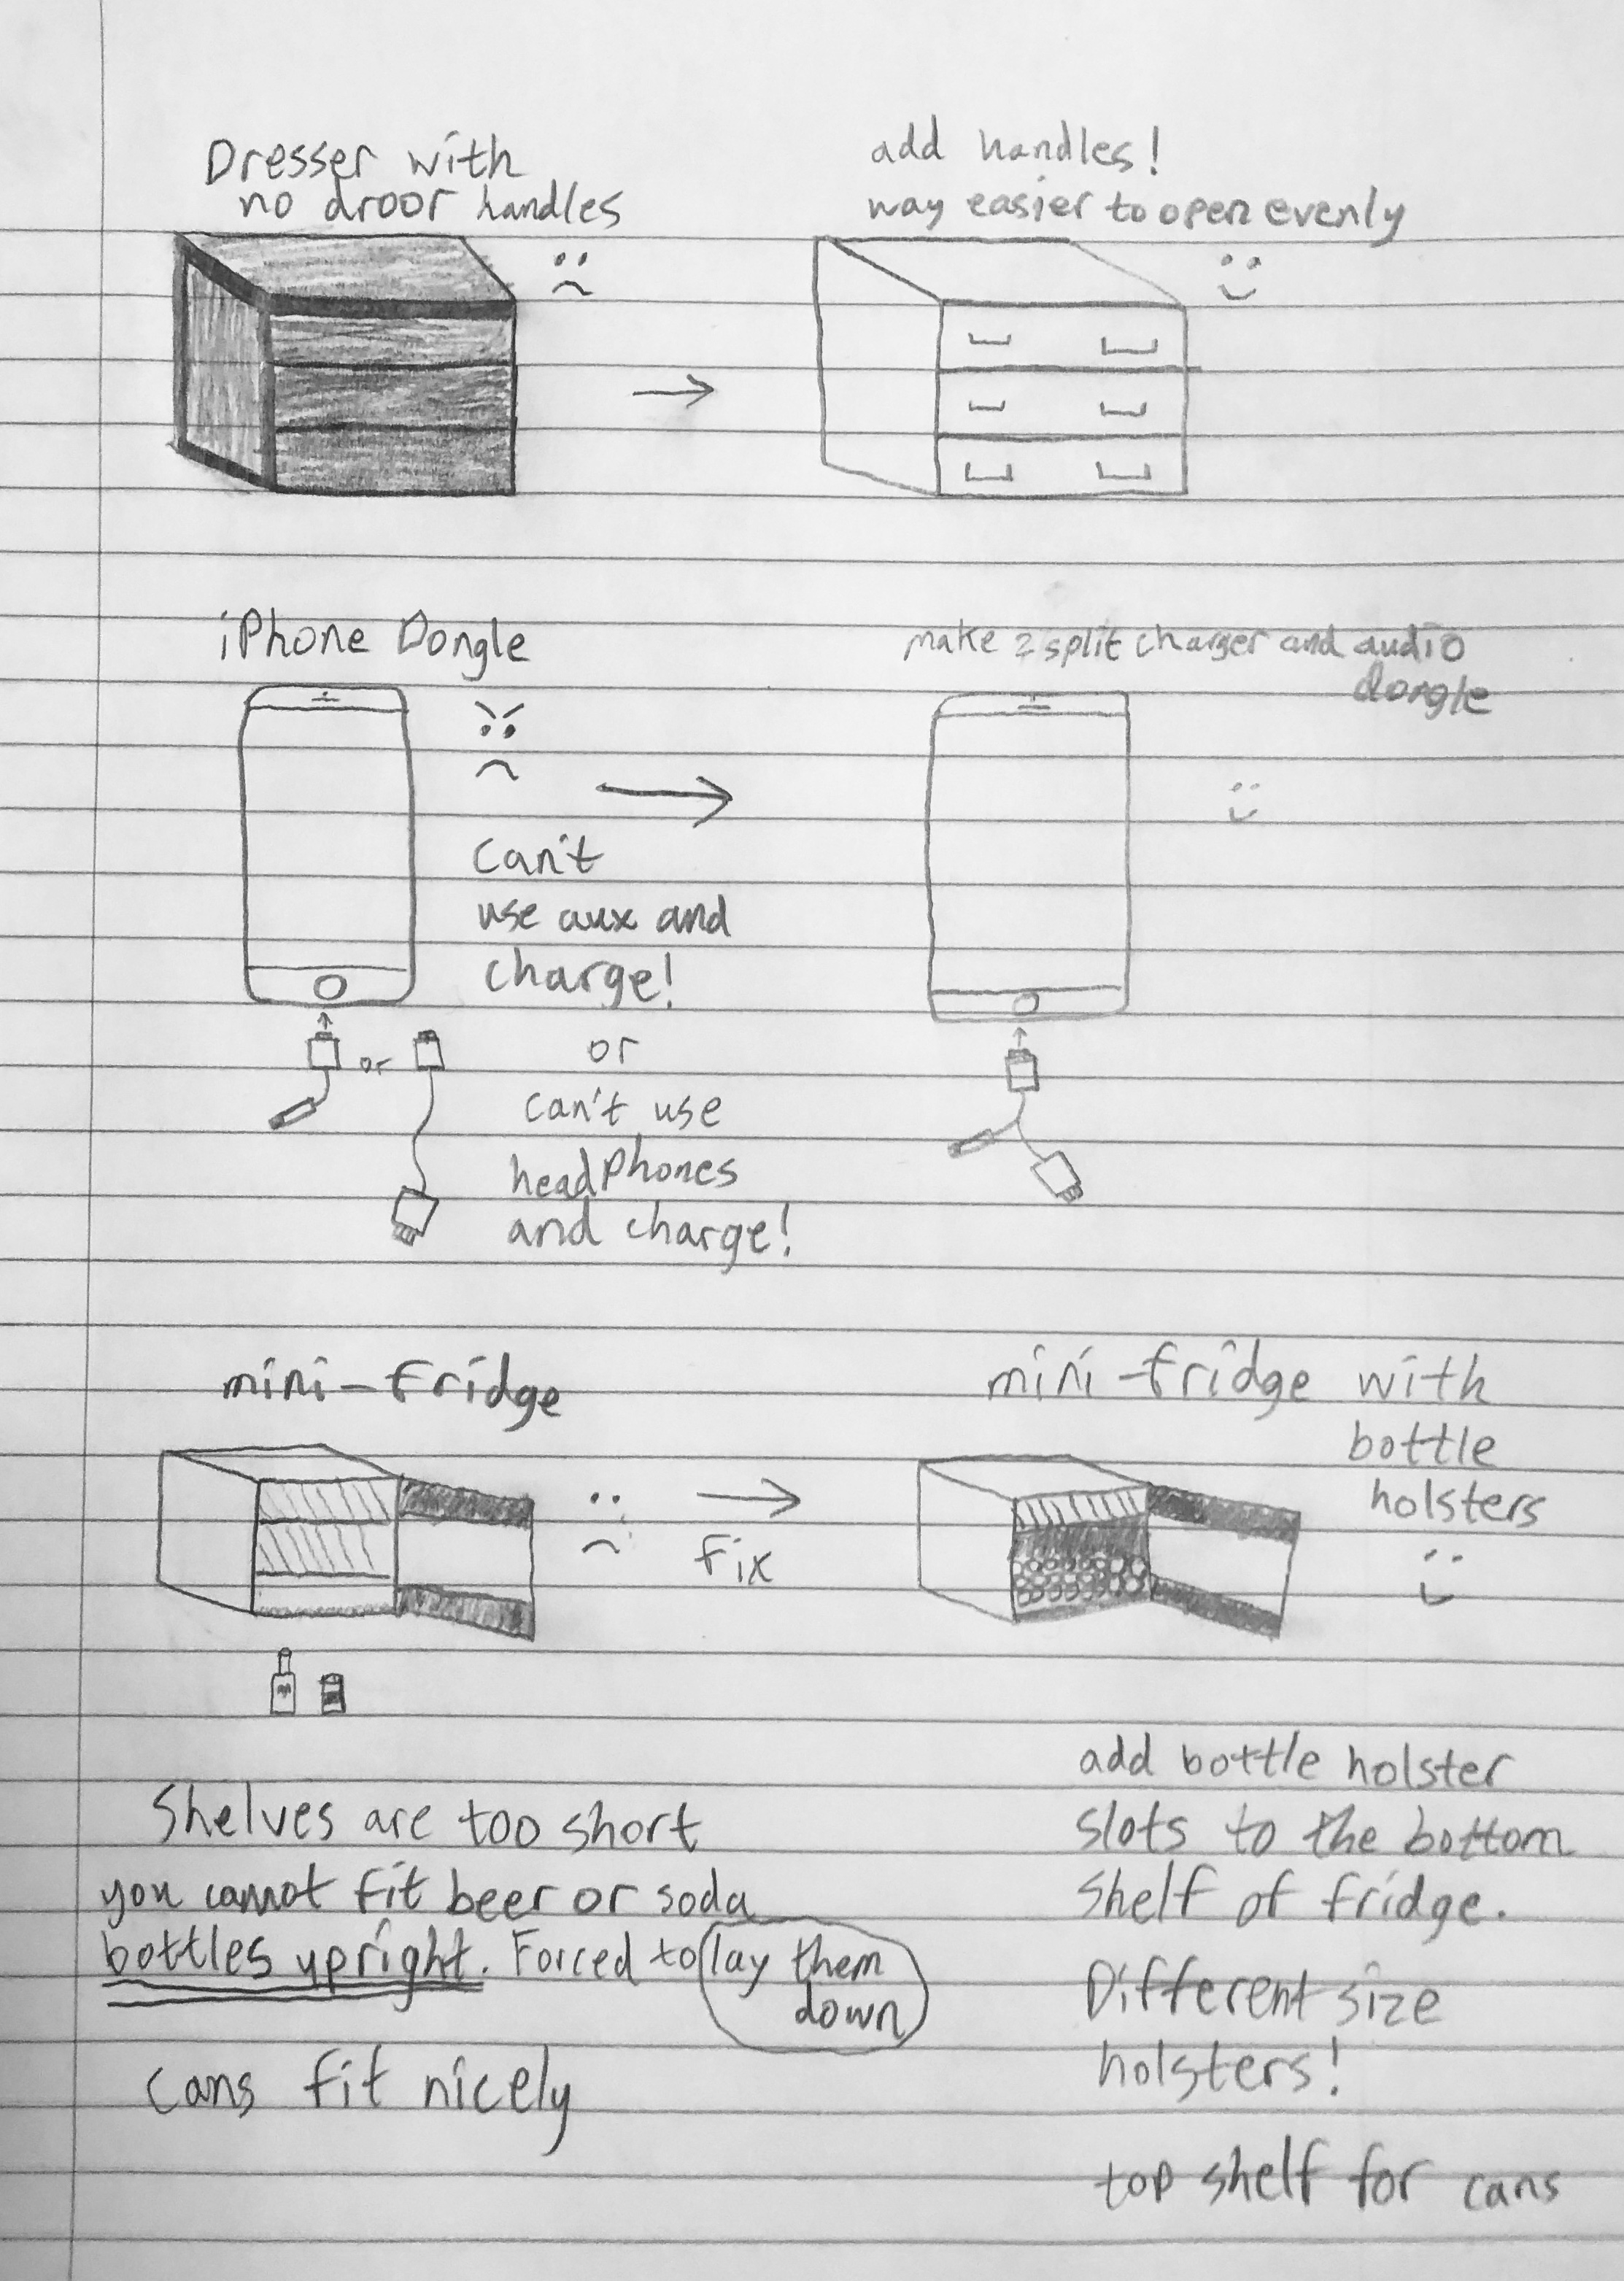 Dresser with
no droor handles
add handles!
way easier to open evenly
iPhone Dongle
Can't
use aux and
charge!
or
or
can't use
headphones
and charge!
make 2 split charger and audio
dongle
mini-fridge
Fix
mini-fridge with
bottle
holsters
Shelves are too short
you cannot fit beer or soda
bottles upright. Forced to lay them
down
cans fit nicely
add bottle holster
slots to the bottom
shelf of fridge.
Different size
holsters!
top shelf for cans